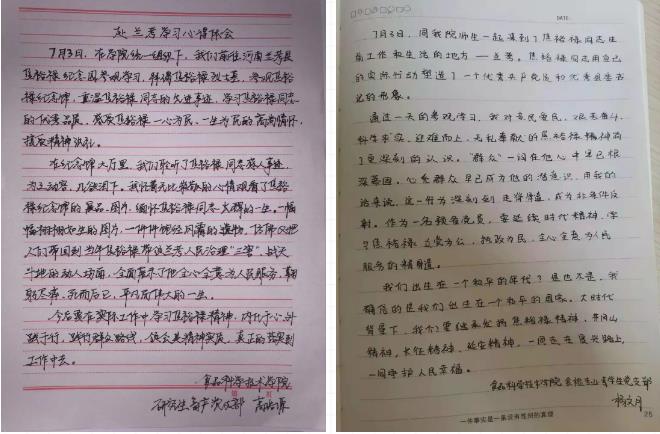 赴兰考学习心得体会
7月3日，在学院统一组织下，我们前往河南兰考县
焦裕禄纪念园参观学习，拜谒焦裕禄烈士墓，参观焦裕
禄纪念馆，重温焦裕禄同志的先进事迹，学习焦裕禄同志
的优秀品质，感受焦裕禄一心为民，一生为民的高尚情怀，
接受精神洗礼。
在纪念馆大厅里，我们聆听了焦裕禄同志感人事迹，
为之动容，几欲泪下。我怀着无比崇敬的心情观看了焦裕
禄纪念馆的展品、图片，缅怀焦裕禄同志光辉的一生。一幅
幅栩栩如生的图片，一件件饱经风霜的遗物，仿佛又把
人们带回到当年焦裕禄带领兰考人民治理"三害"，战天
斗地的动人场面，全面展示了他全心全意为人民服务，鞠
躬尽瘁，死而后已，平凡而伟大的一生。
今后要在实际工作中学习焦裕禄精神，内化于心，外
践于行，践行群众路线，领会其精神实质，真正的落实到
工作中去。
食品科学技术学院
研究生
DATE
7月3日，同我院师生一起来到了焦裕禄同志生
前工作和生活的地方——兰考。焦裕禄同志用自己
的实际行动塑造了一个优秀共产党员和优秀县委书
记的形象。
通过一天的参观学习，我对亲民爱民，艰苦奋斗，
科学求实，迎难而上，无私奉献的焦裕禄精神有
了更深刻的认识。"群众"一词在他心中早已根
深蒂固。心系群众早已成为他的潜意识，用我的
话来说，这一份为深刻到走骨髓，成为条件反
射。作为一名预备党员，要延续时代精神，学
习焦裕禄立党为公，执政为民，全心全意为人民
服务的精身道。
我们出生在一个和平的年代？是也不是，我
确信的是我们出生在一个和平的国家。大时代
背景下，我们要继承发扬焦裕禄精神，井冈山
精神，长征精神，延安精神，一同走在复兴路上，
一同守护人民幸福。
食品科学技术学院
学生党支部
一件事实是一条没有性别的真理
25